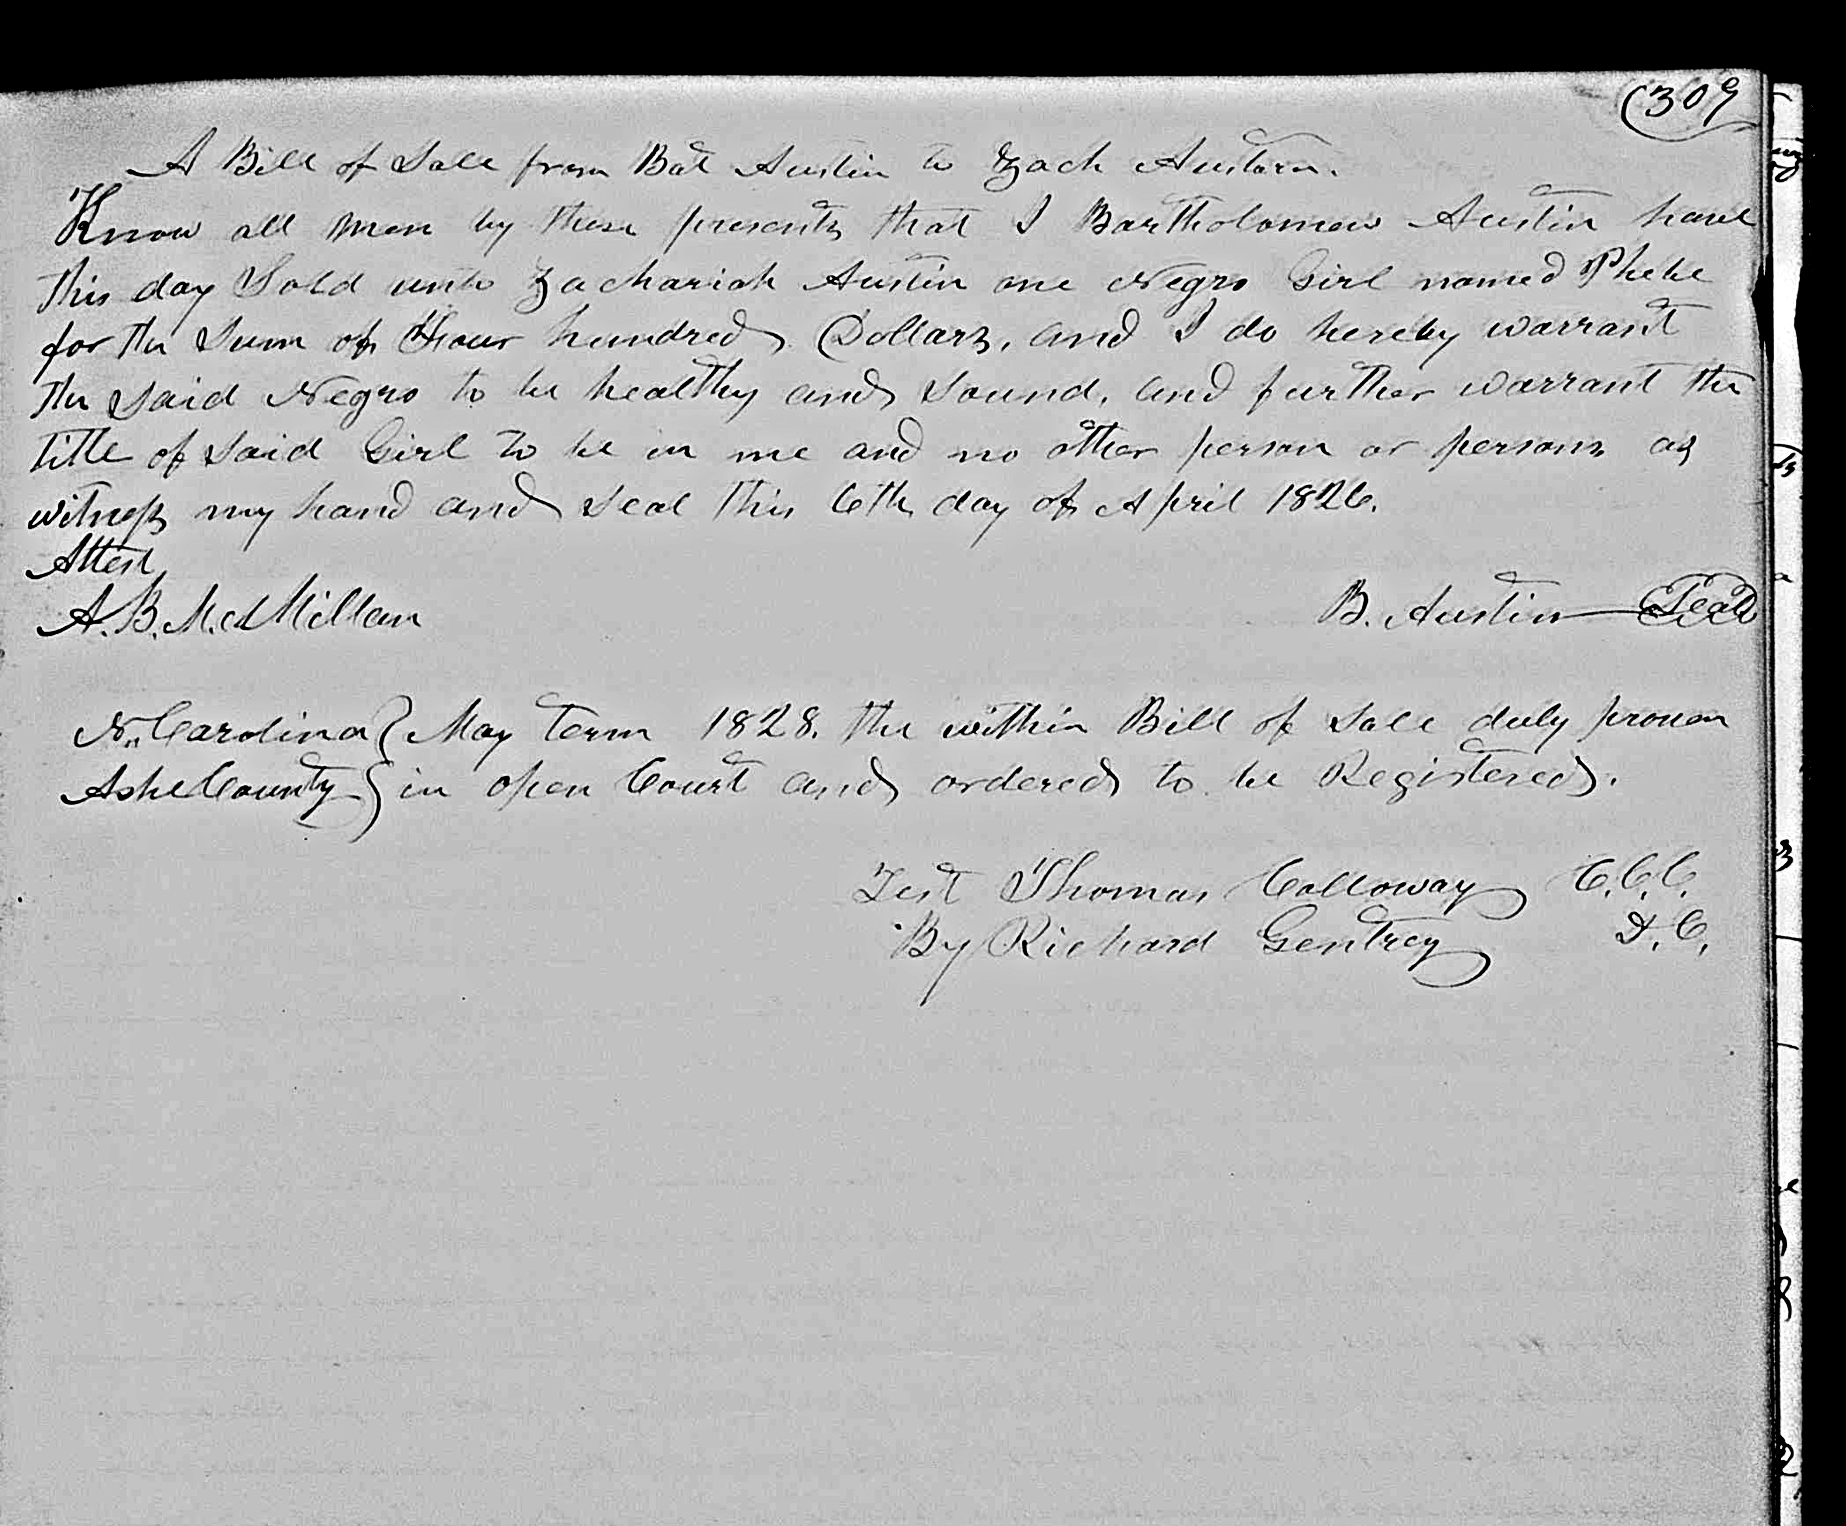 (309
A Bill of Sale from Bat Austin to Zach Austin.
Know all men by these presents that I Bartholomew Austin have
this day Sold unto Zachariah Austin one Negro Girl named Phebe
for the Sum of Four hundred Dollars, and I do hereby warrant
the said Negro to be healthy and Sound, and further warrant the
title of Said Girl to be in me and no other person or persons as
witness my hand and seal this 6th day of April 1826.
Attest
A. B. McMillan B. Austin Seal
N. Carolina } May Term 1828. the within Bill of Sale duly proven
Ashe County } in open Court and ordered to be Registered.
Test Thomas Calloway C.C.C.
By Richard Gentrey D.C.